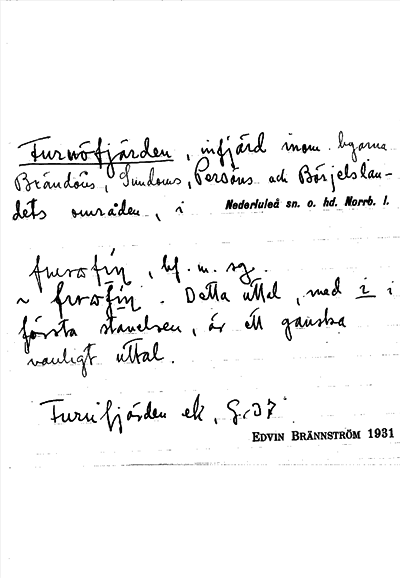 Furuöfjärden, infjärd inom byarna
Brändöns, Sundoms, Persöns och Börjelslan-
dets områden, i Nederluleå sn. o. hd. Norrb. l.
bf. m. sg.
~ Detta uttal, med i i
första stavelsen, är ett ganska
vanligt uttal.
Furufjärden ek,
EDVIN BRÄNNSTRÖM 1931